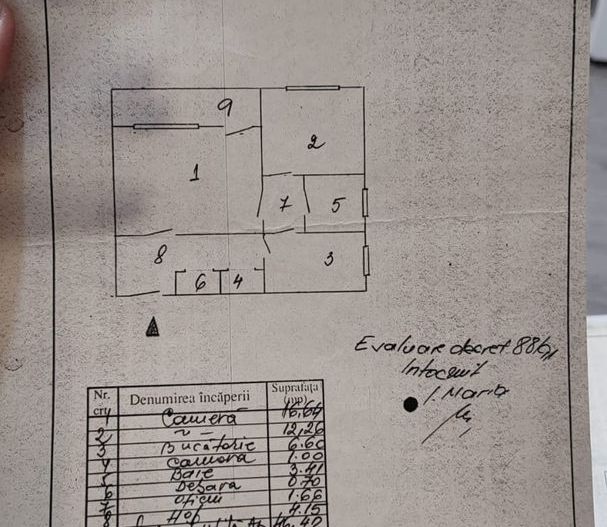 9
2
1
7
5
8
3
6
4
Evaluare decret 88
Intocmit
I. Maria
Nr. crt Denumirea încăperii Suprafața (mp)
1 Cameră 16,64
2 ~ 12,26
3 Bucătărie 6.60
4 Camora 1.00
5 Baie 3.41
6 Debara 0.70
7 Oficiu 1.66
8 Hol 4.15
46.42